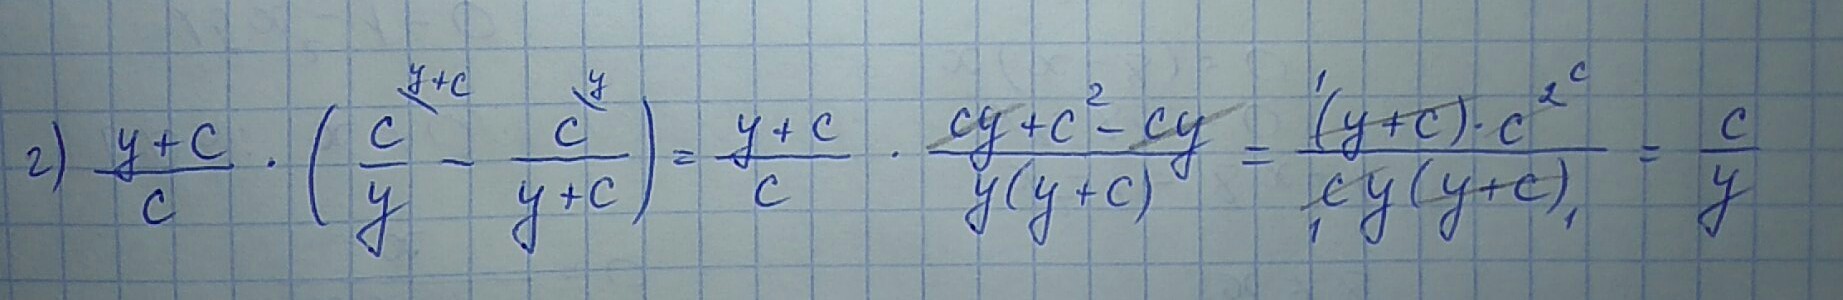 г) \frac{y+c}{c} \cdot \left( \frac{c^{\backslash y+c}}{y} - \frac{c^{\backslash y}}{y+c} \right) = \frac{y+c}{c} \cdot \frac{cy+c^2-cy}{y(y+c)} = \frac{(y+c) \cdot c^2}{cy(y+c)} = \frac{c}{y}